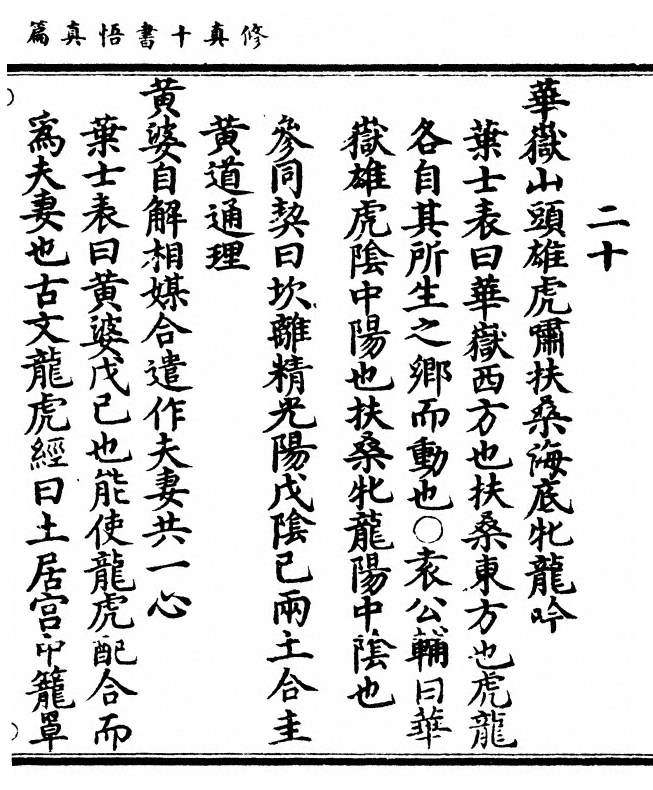 修真十書悟真篇
二十
華嶽山頭雄虎嘯扶桑海底牝龍吟
葉士表曰華嶽西方也扶桑東方也虎龍
各自其所生之鄉而動也○袁公輔曰華
嶽雄虎陰中陽也扶桑牝龍陽中陰也
參同契曰坎離精光陽戊陰己兩土合圭
黃道通理
黃婆自解相媒合遣作夫妻共一心
葉士表曰黃婆戊己也能使龍虎配合而
爲夫妻也古文龍虎經曰土居宮中籠罩